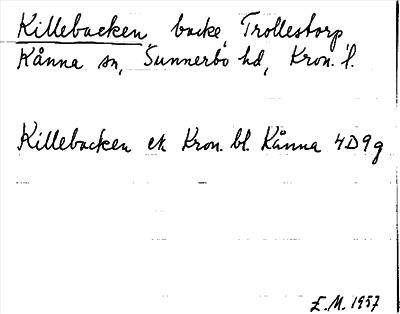 Killebacken, backe, Trollestorp
Kånna sn, Sunnerbo hd, Kron. l.
Killebacken ek Kron. bl. Kånna 4D9g
E.M. 1957